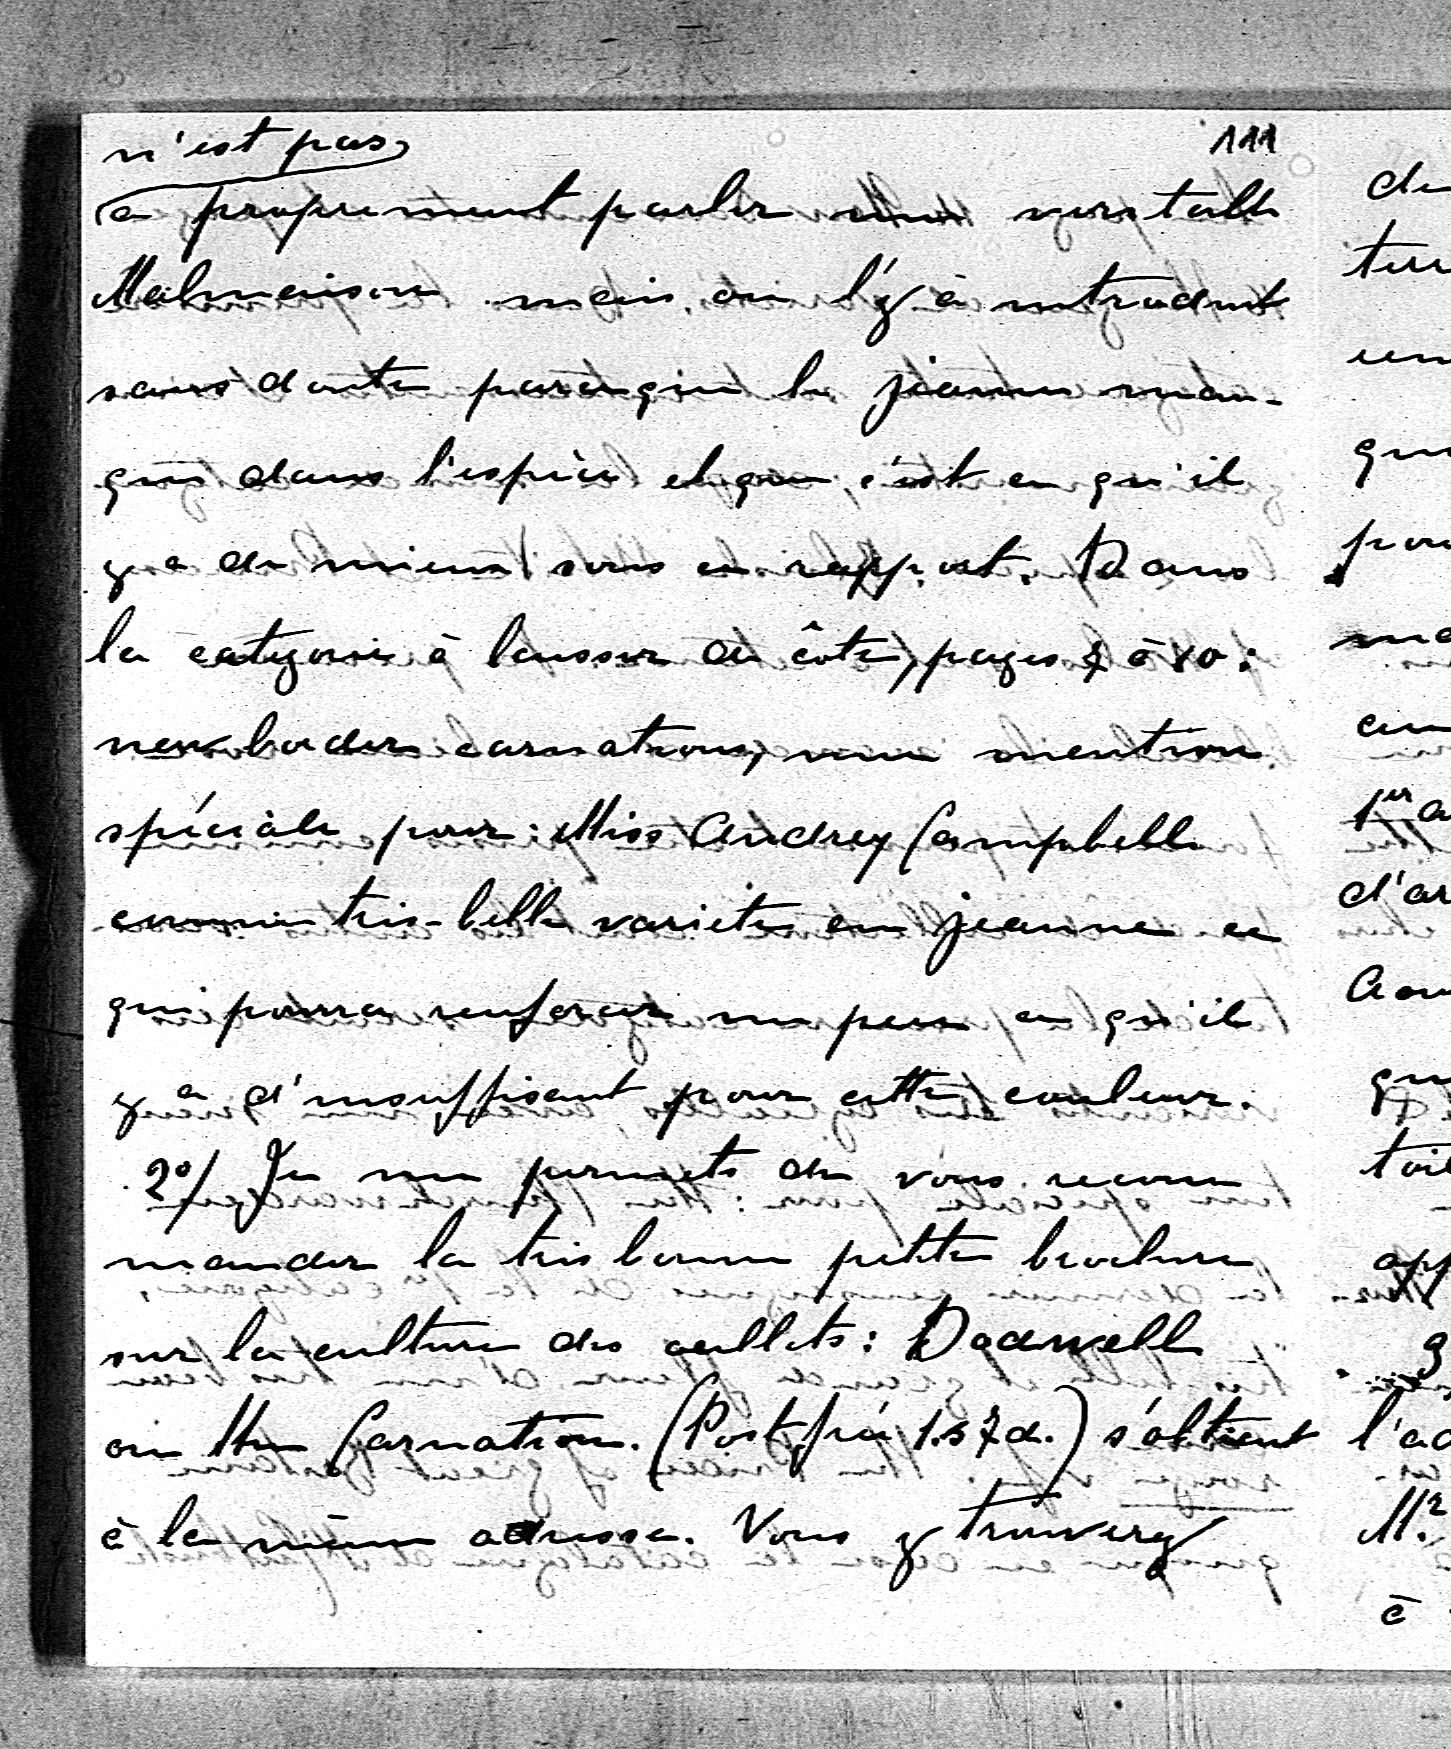 n'est pas
111
à proprement parler une véritable
Malmaison mais on l'y a introduit
sans doute parceque le jaune man-
que dans l'espèce et que c'est ce qu'il
y a de mieux sous ce rapport. Dans
la catégorie à laisser de côté, pages 7 à 10:
new border carnations, une mention
spéciale pour: Miss Audrey Campbell
comme très-belle variété en jeaune ce
qui pourra renforcer un peu ce qu'il
y a d'insuffisant pour cette couleur.
2°/ Je me permets de vous recom
mander la très bonne petite brochure
sur la culture des œillets: Dodwell
on the Carnation. (Post free 1.s 7d.) s'obtient
à la même adresse. Vous y trouverez